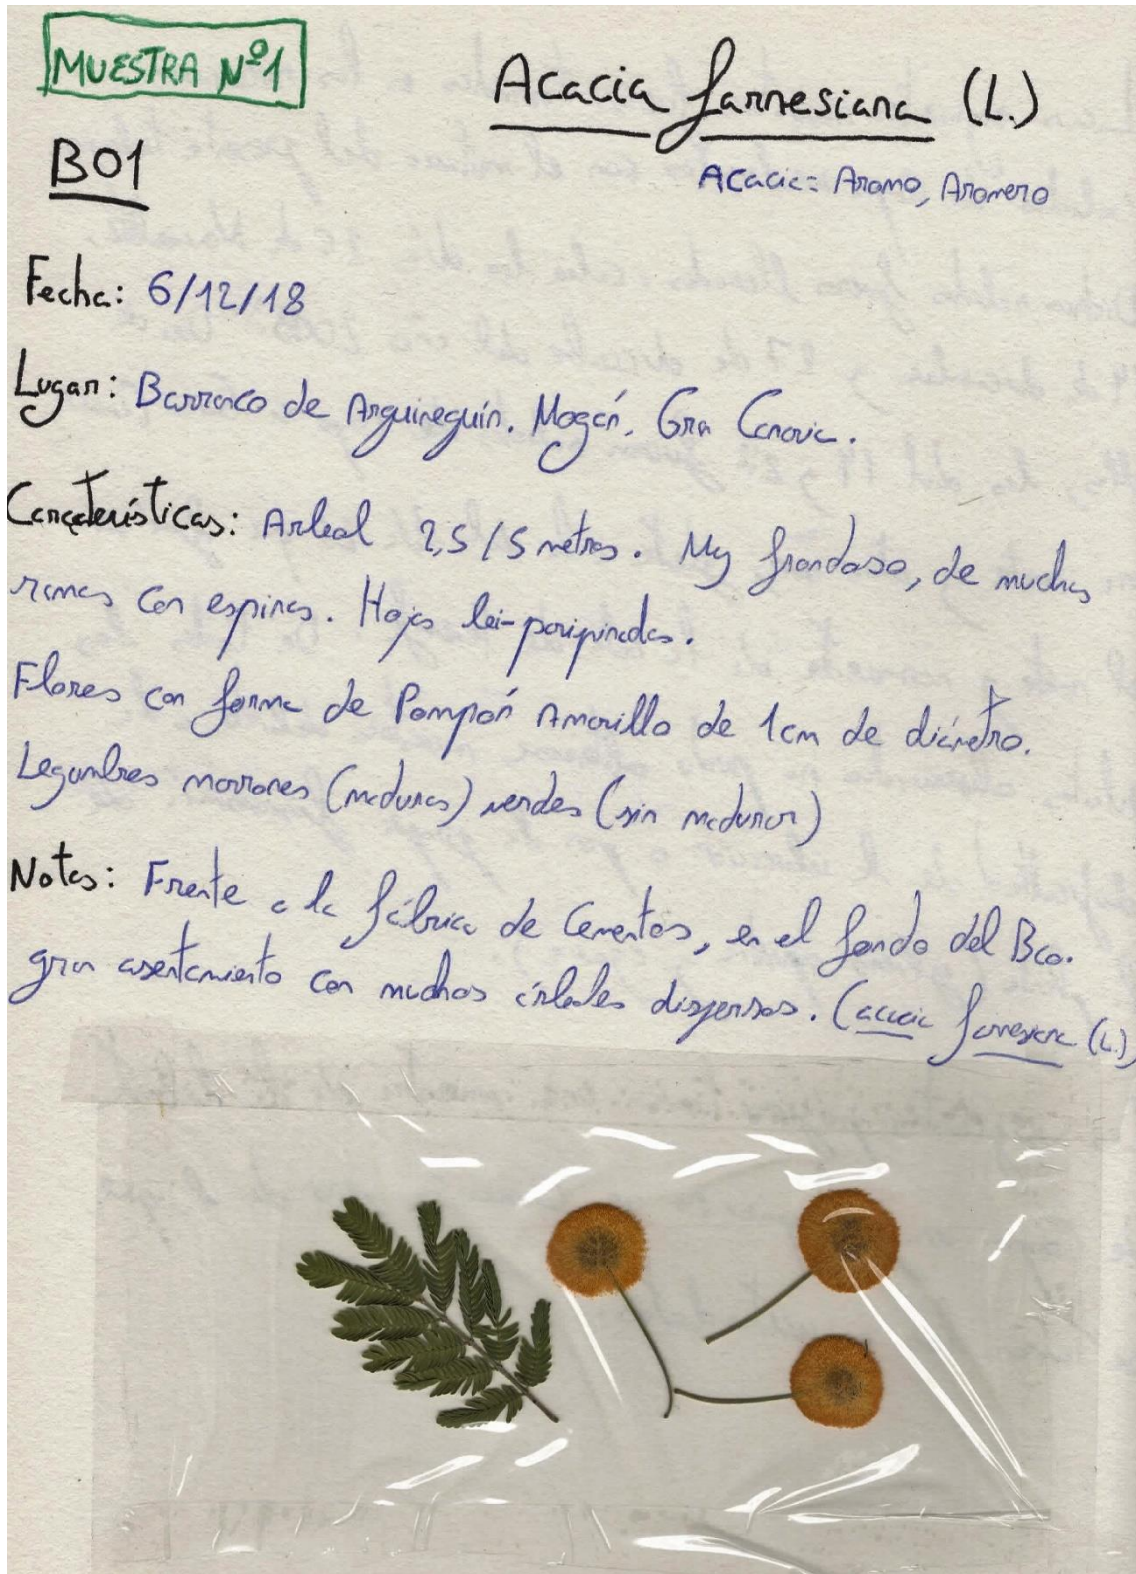 MUESTRA Nº1
Acacia farnesiana (L.)
B01
Acacia= Aromo, Aromero
Fecha: 6/12/18
Lugar: Barranco de Arguineguín. Mogán. Gran Canaria.
Características: Arbeal 2,5/5 metros. Muy frondoso, de muchas
ramas con espinas. Hojas bi-paripinadas.
Flores con forma de Pompón Amarillo de 1cm de diámetro.
Legumbres marrones (maduras) verdes (sin madurar)
Notas: Frente a la fábrica de Cementos, en el fondo del Bco.
gran asentamiento con muchos árboles dispersos. (acacia farnesiana (L.)